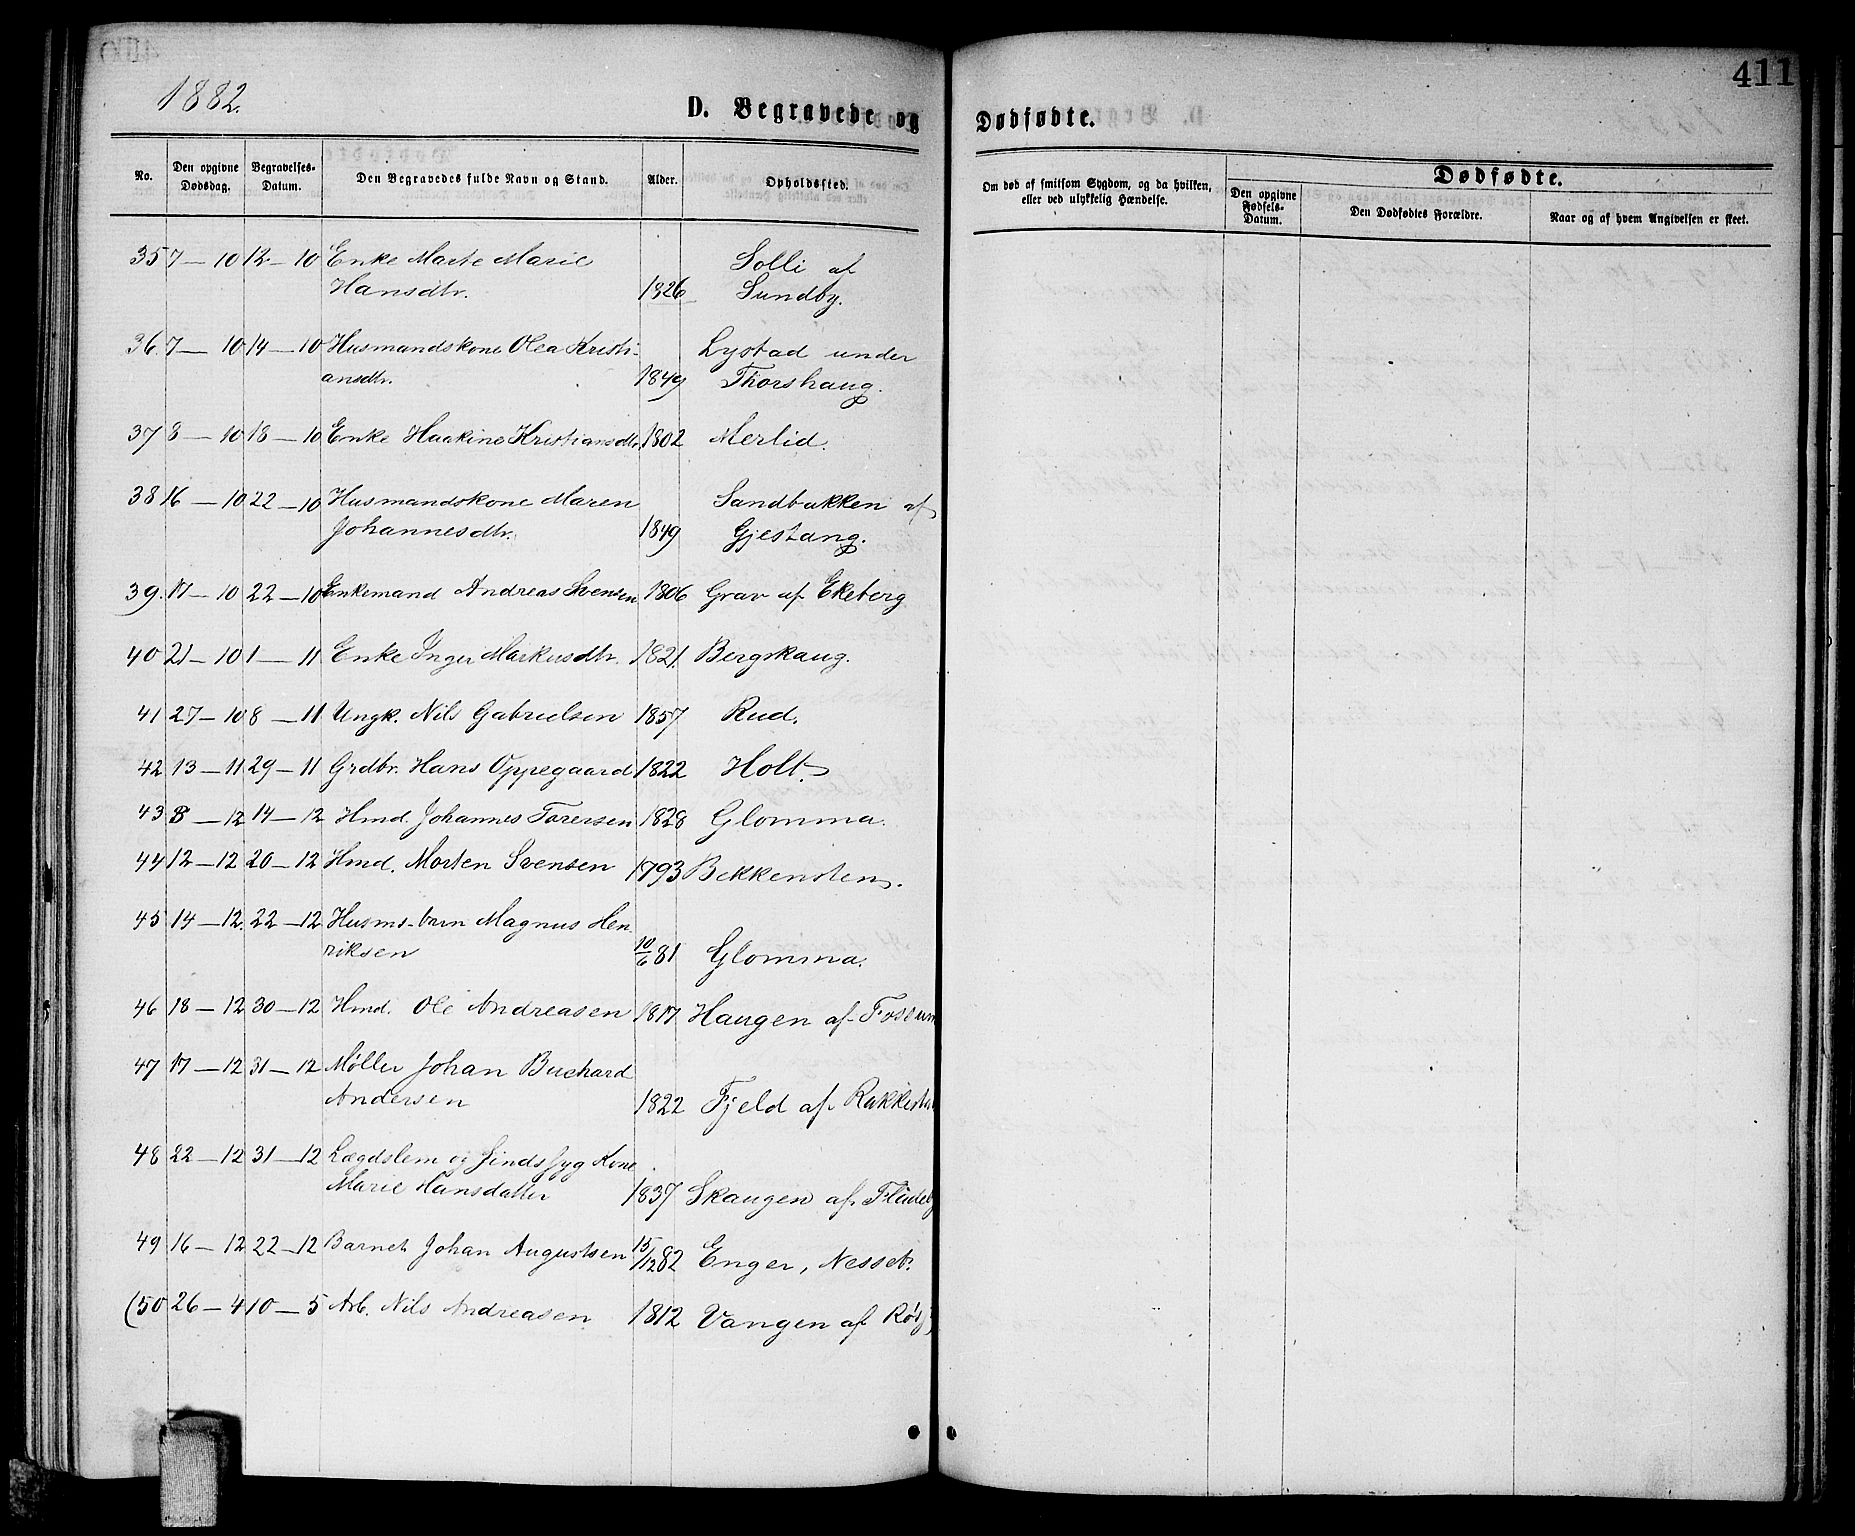 411
1882.
D. Begravede og Dødfødte.
No. Den opgivne Dødsdag. Begravelses-Datum. Den Begravedes fulde Navn og Stand. Alder. Opholdssted. Om død af smitsom Sygdom, og da hvilken, eller ved ulykkelig Hændelse.
Dødfødte.
Den opgivne Fødsels-Datum. Den Dødfødtes Forældre. Naar og af hvem Angivelsen er skeet.
35 7 — 10 12 — 10 Enke Marte Marie Solli af
Hansdtr. 1826 Sundby.
36. 7 — 10 14 — 10 Husmandskone Olea Kristi- Lystad under
ansdtr. 1849 Thorshaug.
37 8 — 10 18 — 10 Enke Haakine Kristiansdtr. 1802 Merlid.
38 16 — 10 22 — 10 Husmandskone Maren Sandbakken af
Johannesdtr. 1849 Gjestang.
39. 17 — 10 22 — 10 Enkemand Andreas Svensen 1806 Grav af Ekeberg
40 21 — 10 1 — 11 Enke Inger Markusdtr. 1821. Bergskaug.
41 27 — 10 8 — 11 Ungk. Nils Gabrielsen 1857 Rud.
42 13 — 11 29 — 11 Grdbr. Hans Oppegaard 1822 Holt.
43 8 — 12 14 — 12 Hmd. Johannes Torersen 1828 Glomma.
44 12 — 12 20 — 12 Hmd. Morten Svensen 1793 Bekkensten.
45 14 — 12. 22 — 12 Husms-barn Magnus Hen
riksen 10/6 81 Glomma.
46 18 — 12 30 — 12 Hmd. Ole Andreasen 1817 Haugen af Fossum
47 17 — 12 31 — 12 Møller Johan Buchard
Andersen 1822 Fjeld af Rakkesta
48 22 — 12 31 — 12 Lægdslem og sindssyg Kone
Marie Hansdatter 1837 Skaugen af
49 16 — 12 22 — 12 Barnet Johan Augustsen 15/12 82 Enger, Nesset.
(50 26 — 4 10 — 5 Arb. Nils Andreasen 1812 Vangen af